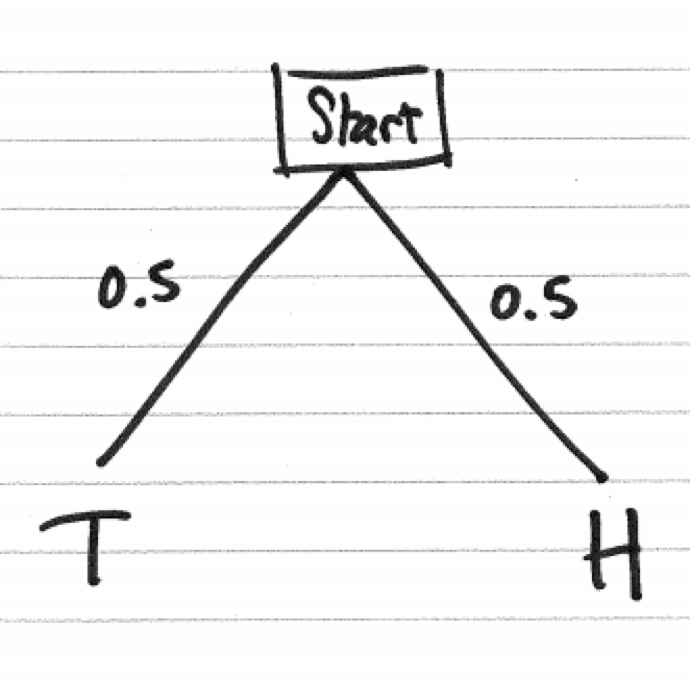 Start
0.5 0.5
T H